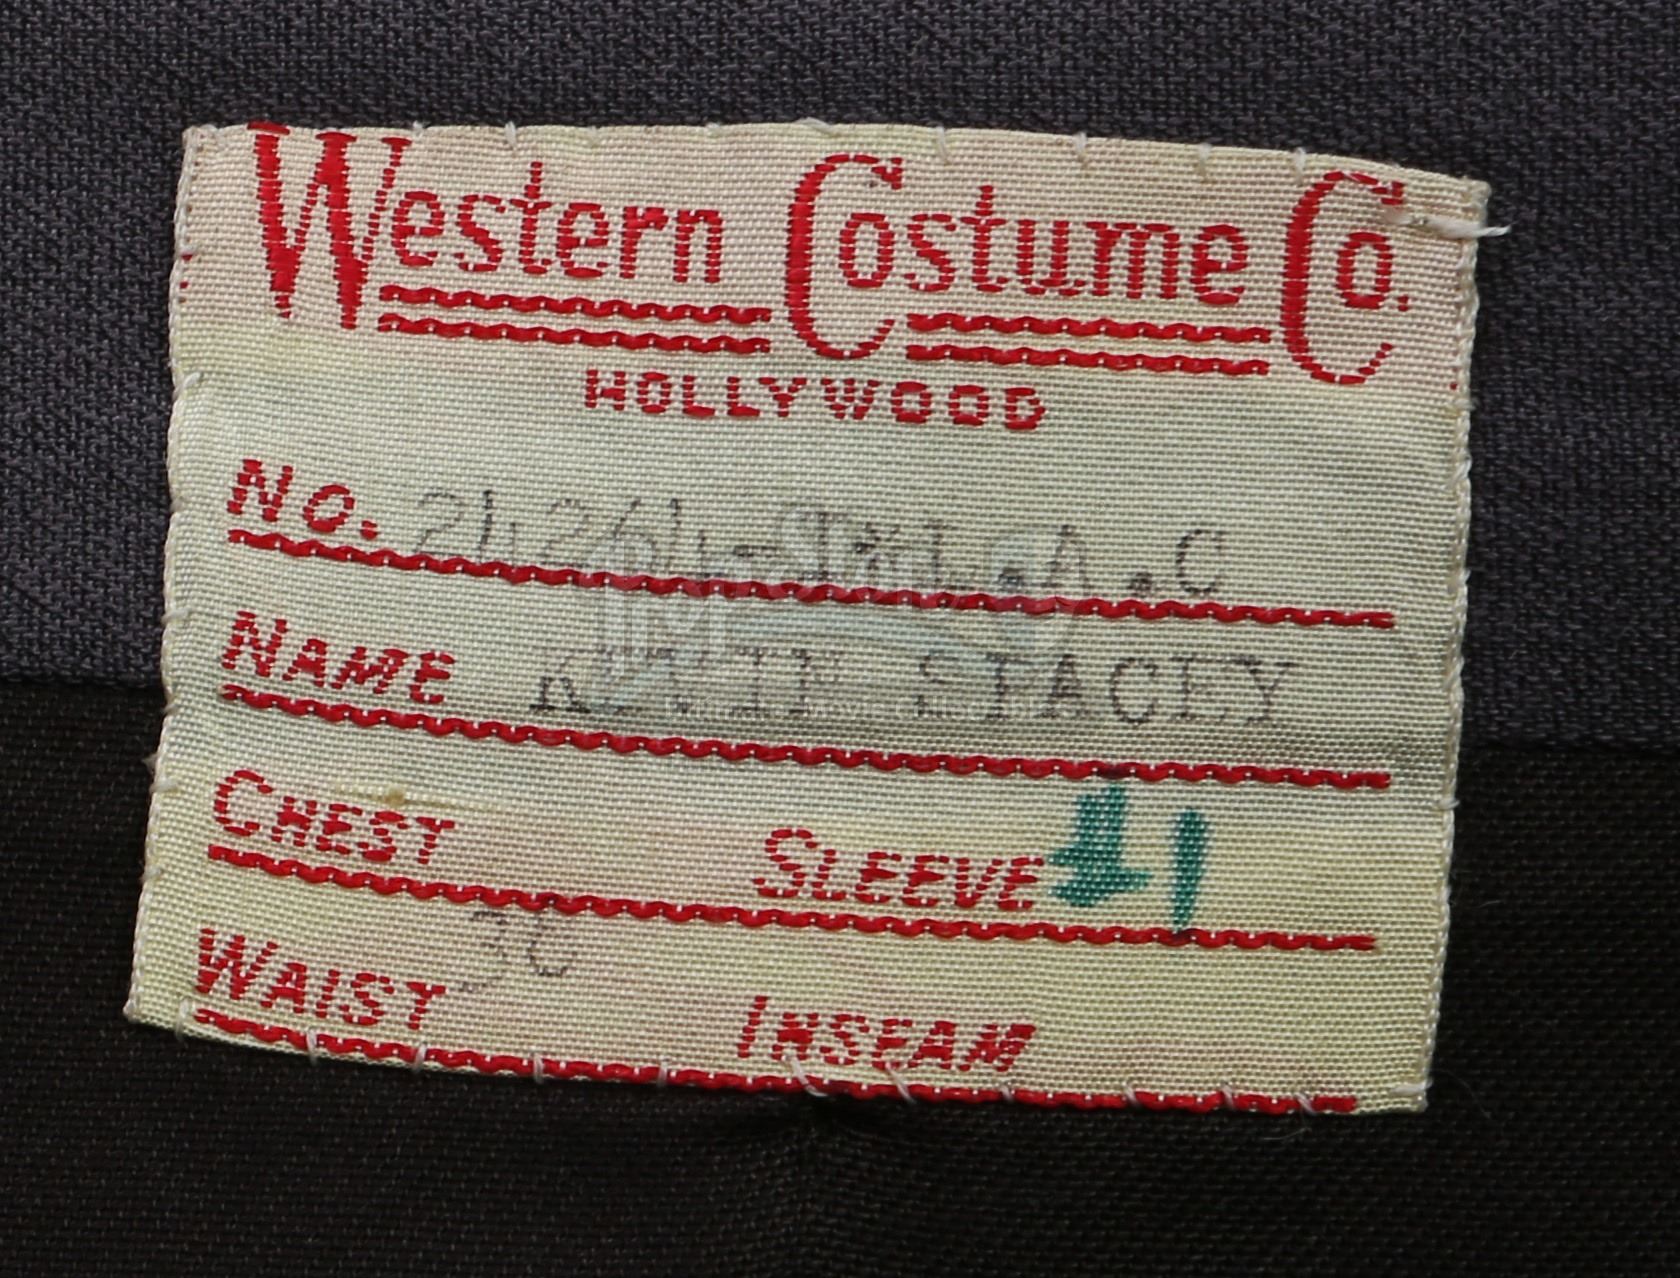 Western Costume Co.
HOLLYWOOD
NO. 2426
NAME STACEY
CHEST SLEEVE #1
WAIST 
INSEAM